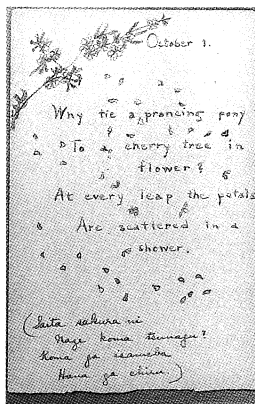 October 1.
Why tie a prancing pony
To a cherry tree in
flower?
At every leap the petals
Are scattered in a
shower.
(Saita sakura ni
Naze koma tsunagu?
Koma ga isameba
Hana ga chiru)